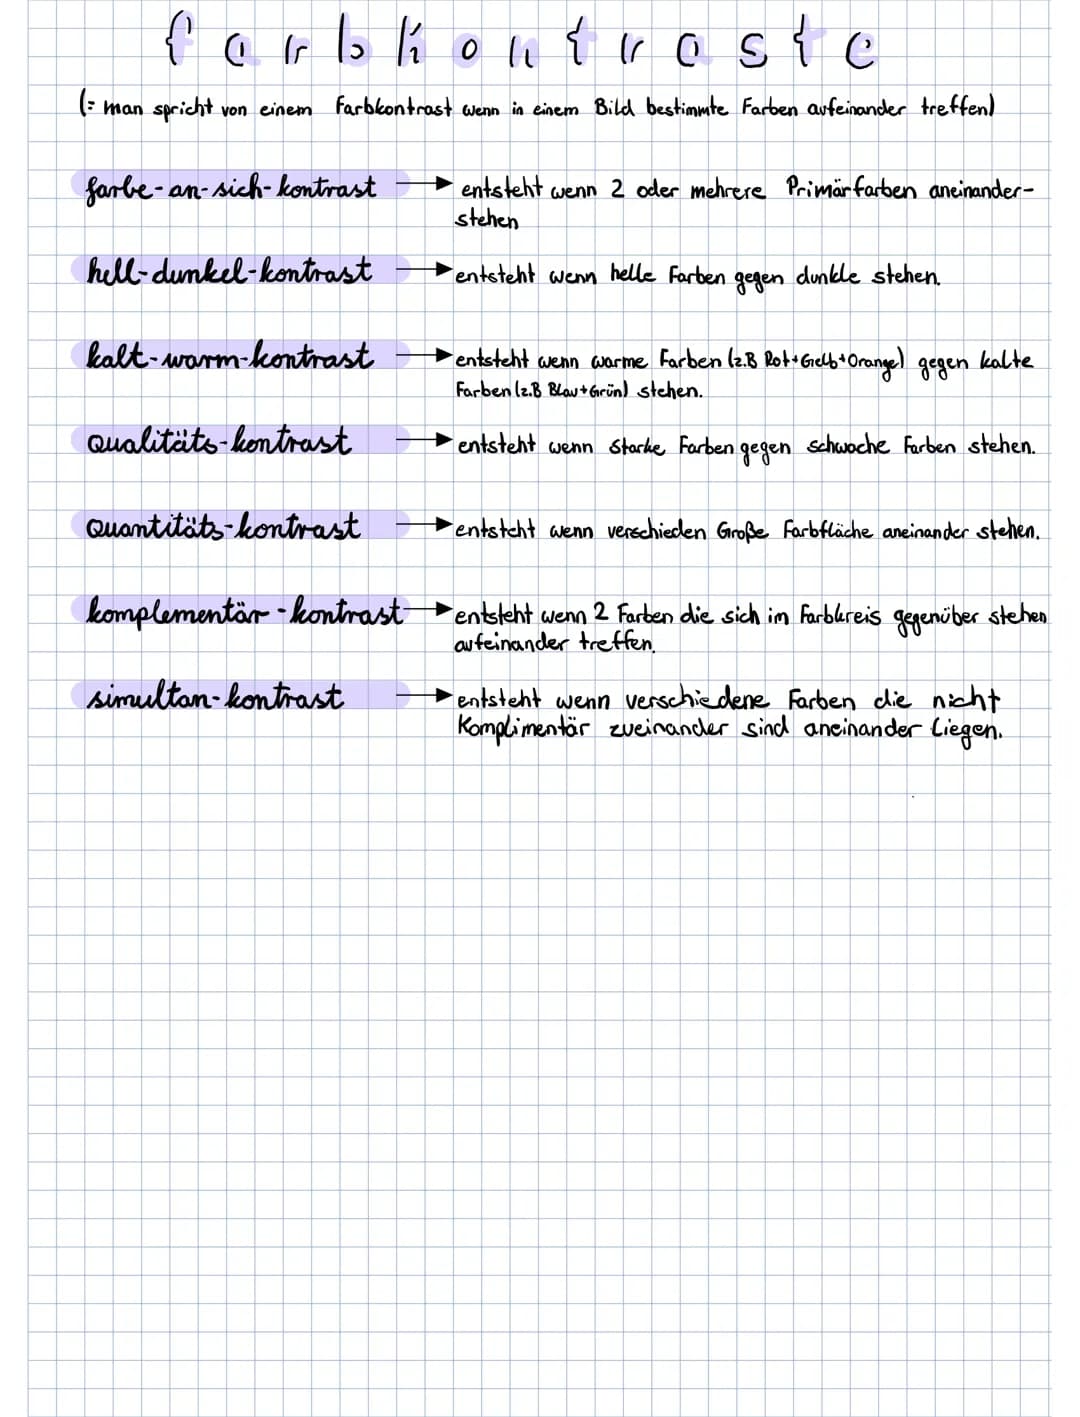 farbkontraste
(= man spricht von einem Farbkontrast wenn in einem Bild bestimmte Farben aufeinander treffen)
farbe-an-sich-kontrast → entsteht wenn 2 oder mehrere Primärfarben aneinander-
stehen
hell-dunkel-kontrast → entsteht wenn helle Farben gegen dunkle stehen.
kalt-warm-kontrast → entsteht wenn warme Farben (z.B Rot+Gelb+Orange) gegen kalte
Farben (z.B Blau+Grün) stehen.
Qualitäts-kontrast → entsteht wenn starke Farben gegen schwache Farben stehen.
Quantitäts-kontrast → entsteht wenn verschieden Große Farbfläche aneinander stehen.
komplementär-kontrast → entsteht wenn 2 Farben die sich im Farbkreis gegenüber stehen
aufeinander treffen.
simultan-kontrast → entsteht wenn verschiedene Farben die nicht
Komplimentär zueinander sind aneinander liegen.